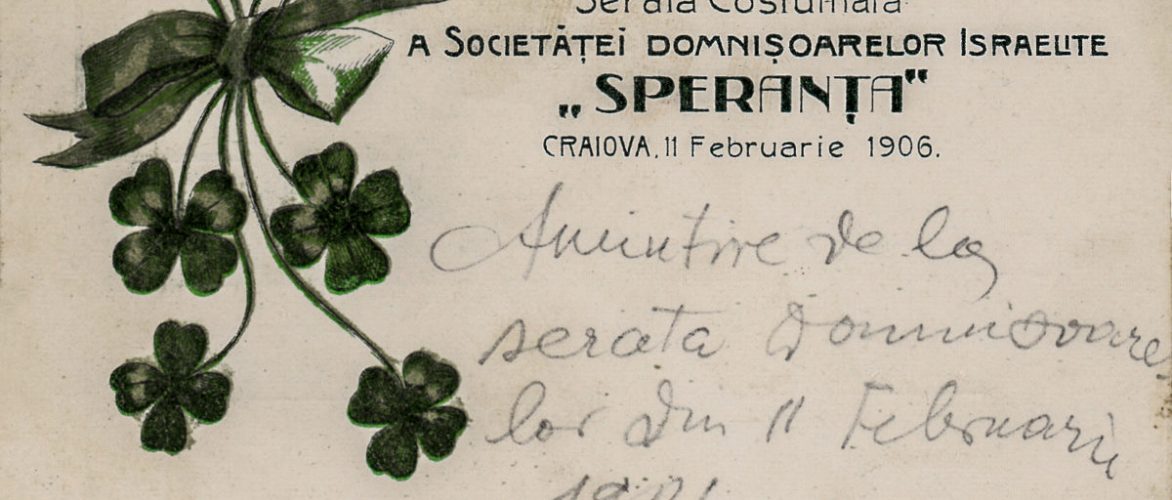 Serata Costumată
A SOCIETĂŢEI DOMNIŞOARELOR ISRAELITE
„SPERANŢA"
CRAIOVA, 11 Februarie 1906.
Amintire de la
serata Domnisoare
lor din 11 Februarie